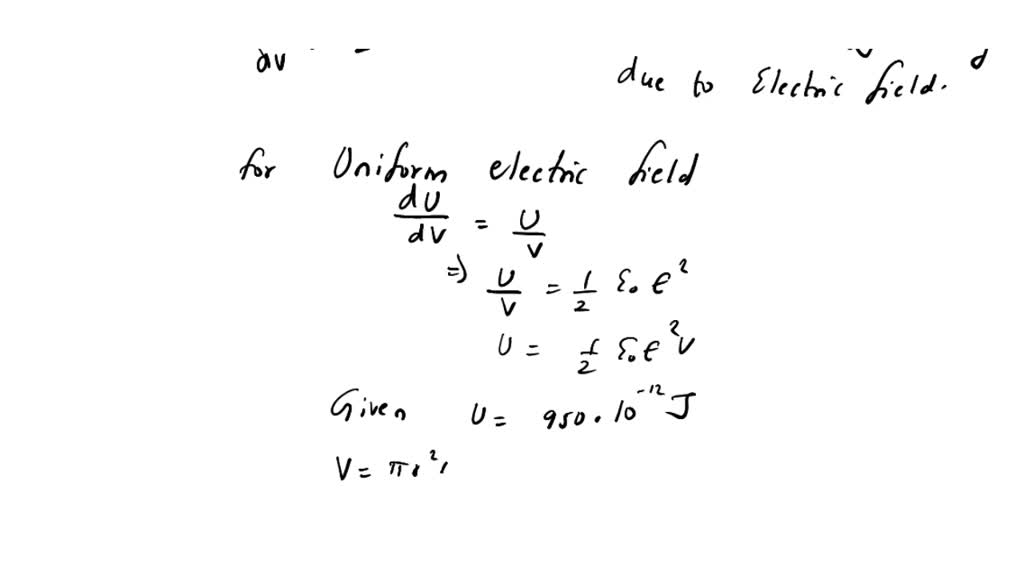 dv
due to Electric field.
for Uniform electric field
dU/dV = U/V
=> U/V = 1/2 ε₀ E²
U = 1/2 ε₀ E² V
Given U = 950 · 10⁻¹² J
V = π r²